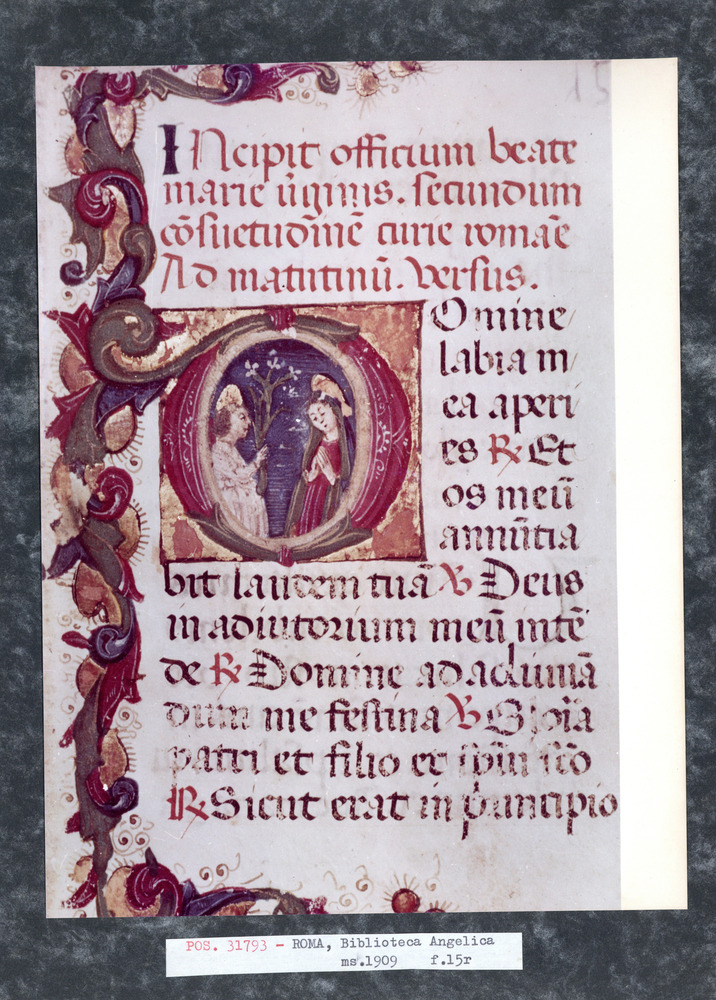 15
INcipit officium beate
marie ṽginis. secundum
cõsuetudinẽ curie romae
Ad matutinũ. Versus.
Domine
labia m
ea aperi
es ℟ Et
os meũ
annũtia
bit laudem tuã ℣ Deus
in adiutorium meũ intẽ
de ℟ Domine ad adiuuã
dum me festina ℣ Gloĩa
patri et filio et spũi scõ
℟ Sicut erat in principio
POS. 31793 - ROMA, Biblioteca Angelica
ms.1909 f.15r